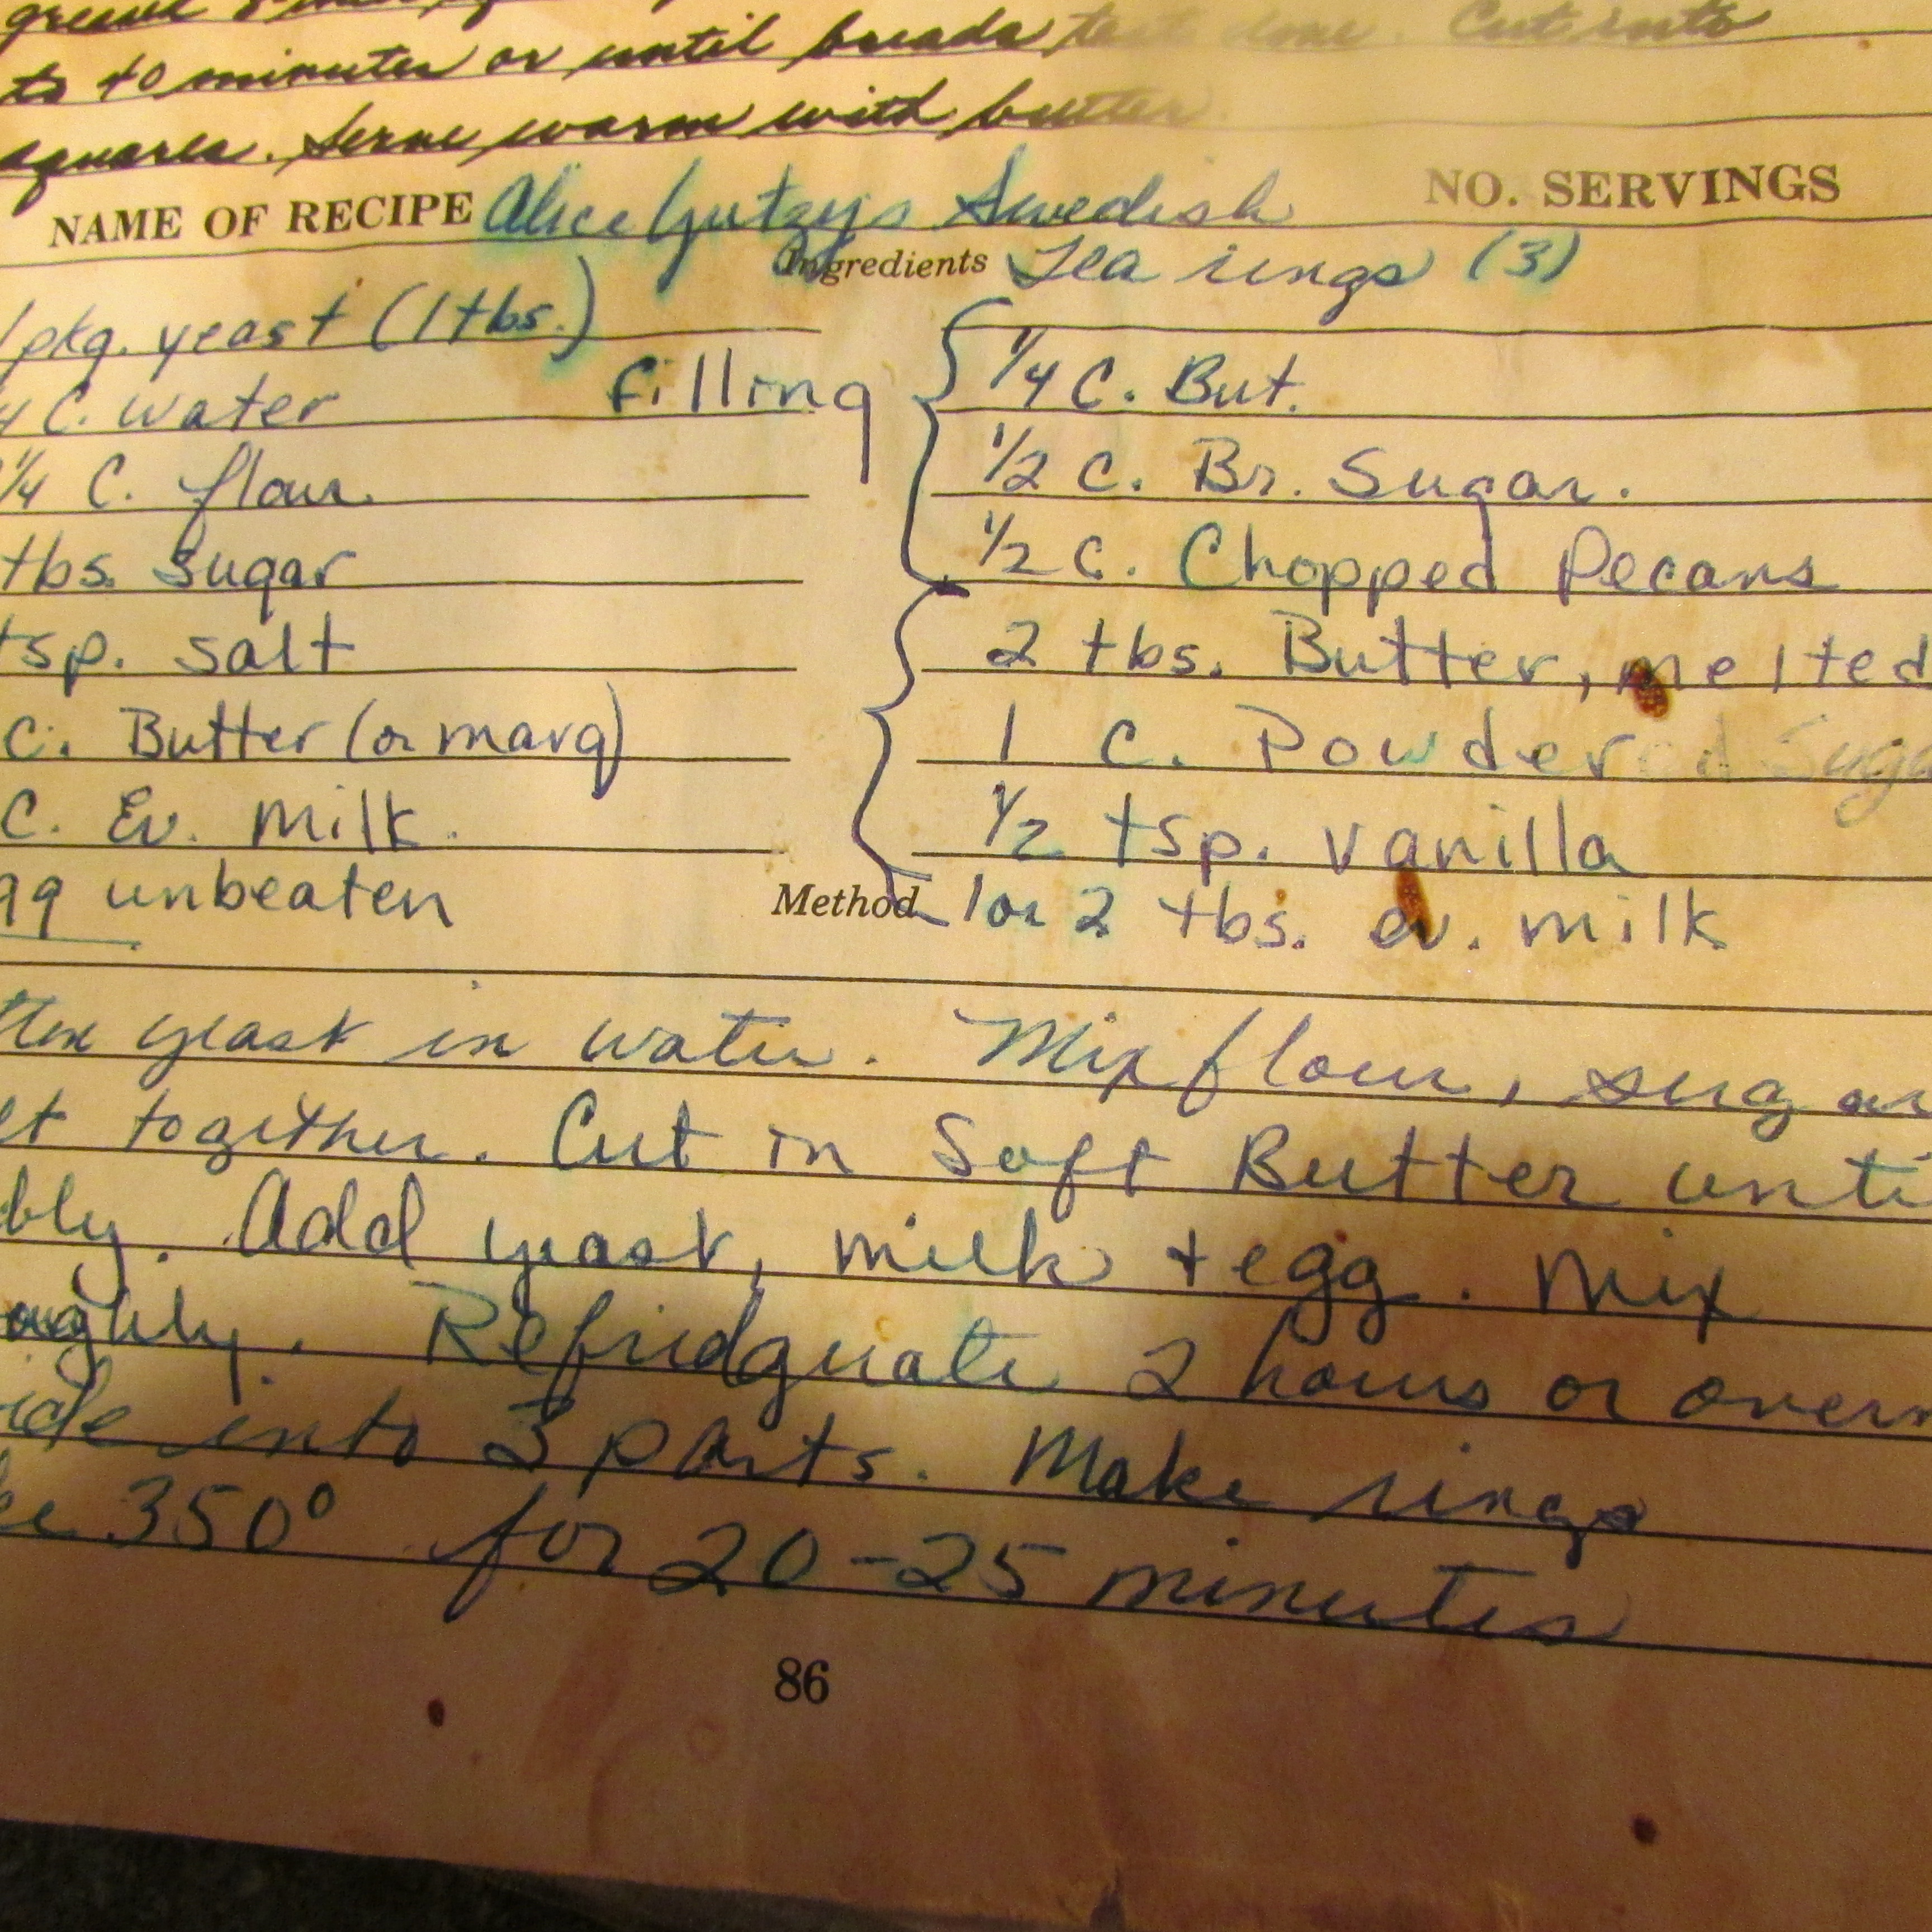 to 40 minutes or until breads test done. Cut into
squares. Serve warm with butter.
NAME OF RECIPE Alice Gutzy's Swedish NO. SERVINGS
Ingredients Tea rings (3)
1 pkg. yeast (1 tbs.)
C. water
1/4 C. flour
tbs. sugar
tsp. salt
C. Butter (or marg)
C. Ev. Milk.
unbeaten
filling
1/4 C. But.
1/2 C. Br. Sugar.
1/2 C. Chopped Pecans
2 tbs. Butter, melted
1 C. Powdered Suga
1/2 tsp. vanilla
Method 1 or 2 tbs. ev. milk
yeast in water. Mix flour, sugar
together. Cut in Soft Butter unti
bly. Add yeast, milk + egg. Mix
oughly. Refridgerate 2 hours or overn
ide into 3 parts. Make rings
ke 350° for 20-25 minutes
86